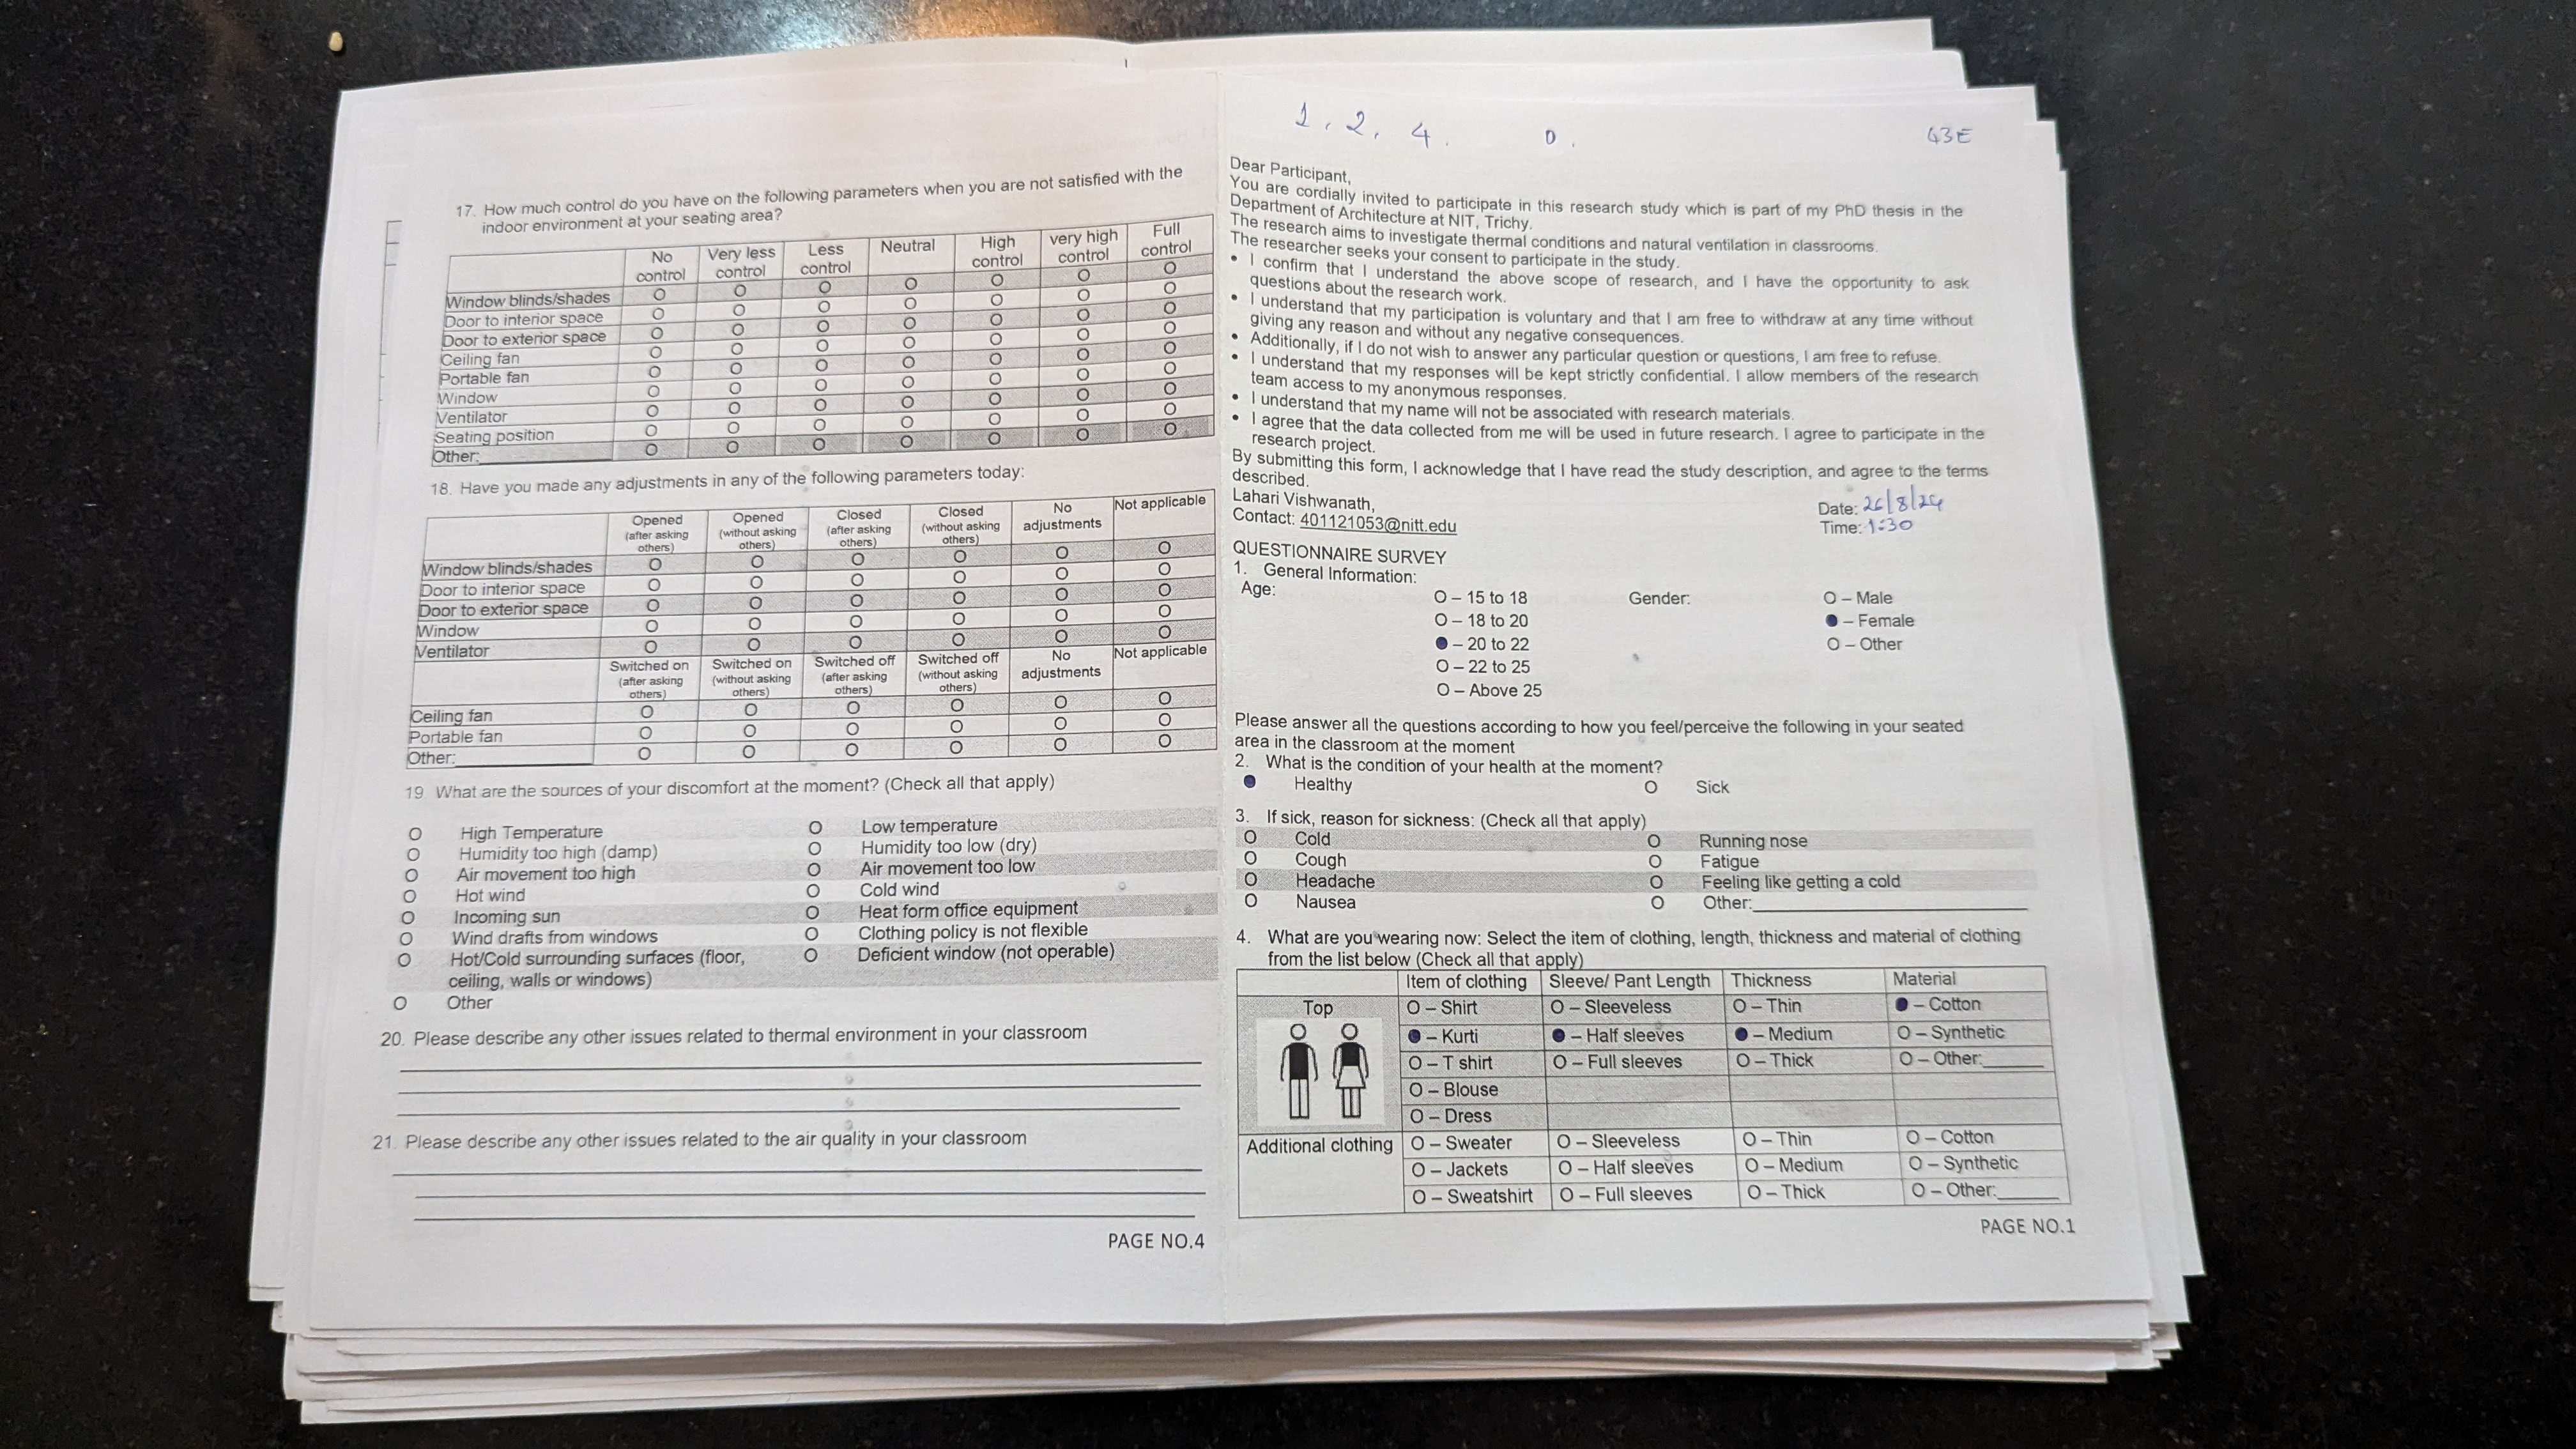 17. How much control do you have on the following parameters when you are not satisfied with the
indoor environment at your seating area?
No control Very less control Less control Neutral High control very high control Full control
Window blinds/shades O O O O O O O
Door to interior space O O O O O O O
Door to exterior space O O O O O O O
Ceiling fan O O O O O O O
Portable fan O O O O O O O
Window O O O O O O O
Ventilator O O O O O O O
Seating position O O O O O O O
Other:__________ O O O O O O O
18. Have you made any adjustments in any of the following parameters today:
Opened (after asking others) Opened (without asking others) Closed (after asking others) Closed (without asking others) No adjustments Not applicable
Window blinds/shades O O O O O O
Door to interior space O O O O O O
Door to exterior space O O O O O O
Window O O O O O O
Ventilator O O O O O O
Switched on (after asking others) Switched on (without asking others) Switched off (after asking others) Switched off (without asking others) No adjustments Not applicable
Ceiling fan O O O O O O
Portable fan O O O O O O
Other:__________ O O O O O O
19. What are the sources of your discomfort at the moment? (Check all that apply)
O High Temperature O Low temperature
O Humidity too high (damp) O Humidity too low (dry)
O Air movement too high O Air movement too low
O Hot wind O Cold wind
O Incoming sun O Heat form office equipment
O Wind drafts from windows O Clothing policy is not flexible
O Hot/Cold surrounding surfaces (floor, O Deficient window (not operable)
ceiling, walls or windows)
O Other
20. Please describe any other issues related to thermal environment in your classroom
21. Please describe any other issues related to the air quality in your classroom
PAGE NO.4
1, 2, 4. 0. 43E
Dear Participant,
You are cordially invited to participate in this research study which is part of my PhD thesis in the
Department of Architecture at NIT, Trichy.
The research aims to investigate thermal conditions and natural ventilation in classrooms.
The researcher seeks your consent to participate in the study.
• I confirm that I understand the above scope of research, and I have the opportunity to ask
questions about the research work.
• I understand that my participation is voluntary and that I am free to withdraw at any time without
giving any reason and without any negative consequences.
• Additionally, if I do not wish to answer any particular question or questions, I am free to refuse.
• I understand that my responses will be kept strictly confidential. I allow members of the research
team access to my anonymous responses.
• I understand that my name will not be associated with research materials.
• I agree that the data collected from me will be used in future research. I agree to participate in the
research project.
By submitting this form, I acknowledge that I have read the study description, and agree to the terms
described.
Lahari Vishwanath, Date: 26/8/24
Contact: 401121053@nitt.edu Time: 1:30
QUESTIONNAIRE SURVEY
1. General Information:
Age: O – 15 to 18 Gender: O – Male
O – 18 to 20 ● – Female
● – 20 to 22 O – Other
O – 22 to 25
O – Above 25
Please answer all the questions according to how you feel/perceive the following in your seated
area in the classroom at the moment
2. What is the condition of your health at the moment?
● Healthy O Sick
3. If sick, reason for sickness: (Check all that apply)
O Cold O Running nose
O Cough O Fatigue
O Headache O Feeling like getting a cold
O Nausea O Other:__________
4. What are you wearing now: Select the item of clothing, length, thickness and material of clothing
from the list below (Check all that apply)
Item of clothing Sleeve/ Pant Length Thickness Material
Top O – Shirt O – Sleeveless O – Thin ● – Cotton
● – Kurti ● – Half sleeves ● – Medium O – Synthetic
O – T shirt O – Full sleeves O – Thick O – Other:______
O – Blouse
O – Dress
Additional clothing O – Sweater O – Sleeveless O – Thin O – Cotton
O – Jackets O – Half sleeves O – Medium O – Synthetic
O – Sweatshirt O – Full sleeves O – Thick O – Other:______
PAGE NO.1